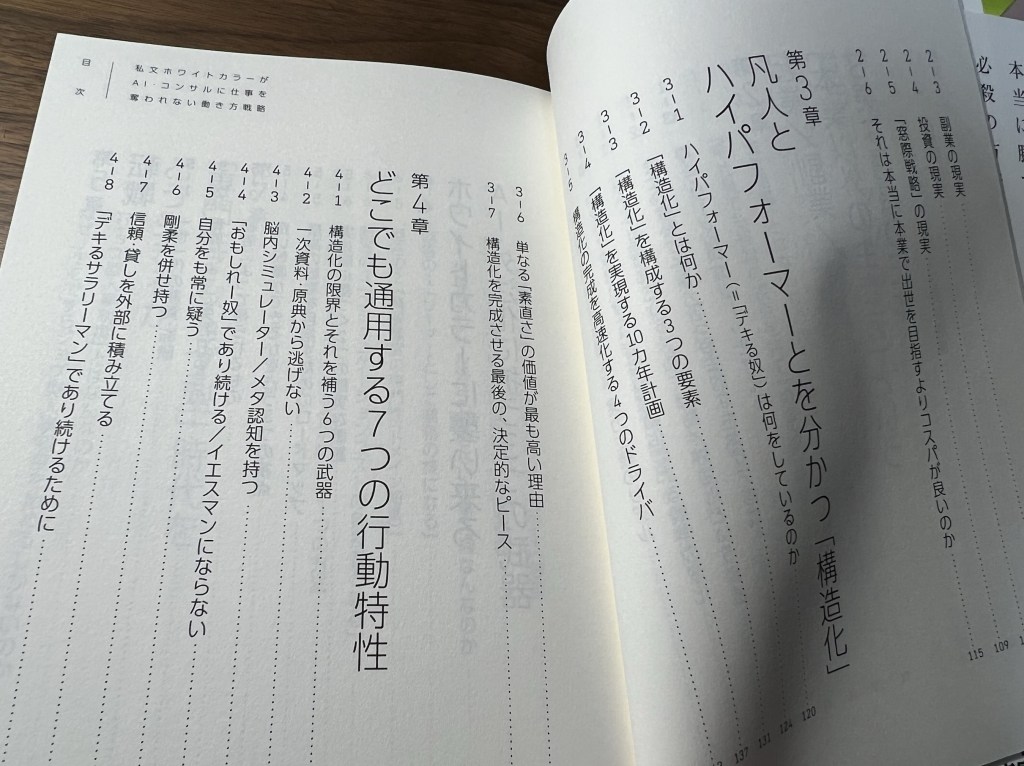 2-3 副業の現実
2-4 投資の現実
2-5 「窓際戦略」の現実 109
2-6 それは本当に本業で出世を目指すよりコスパが良いのか 115
第3章
凡人と
ハイパフォーマーとを分かつ「構造化」
3-1 ハイパフォーマー(=「デキる奴」)は何をしているのか 120
3-2 「構造化」とは何か 124
3-3 「構造化」を構成する3つの要素 131
3-4 「構造化」を実現する10カ年計画 137
3-5 構造化の完成を高速化する4つのドライバー
目次
私文ホワイトカラーが
AI・コンサルに仕事を
奪われない働き方戦略
3-6 単なる「素直さ」の価値が最も高い理由
3-7 構造化を完成させる最後の、決定的なピース
第4章
どこでも通用する7つの行動特性
4-1 構造化の限界とそれを補う6つの武器
4-2 一次資料・原典から逃げない
4-3 脳内シミュレーター/メタ認知を持つ
4-4 「おもしれー奴」であり続ける/イエスマンにならない
4-5 自分をも常に疑う
4-6 剛柔を併せ持つ
4-7 信頼・貸しを外部に積み立てる
4-8 「デキるサラリーマン」であり続けるために